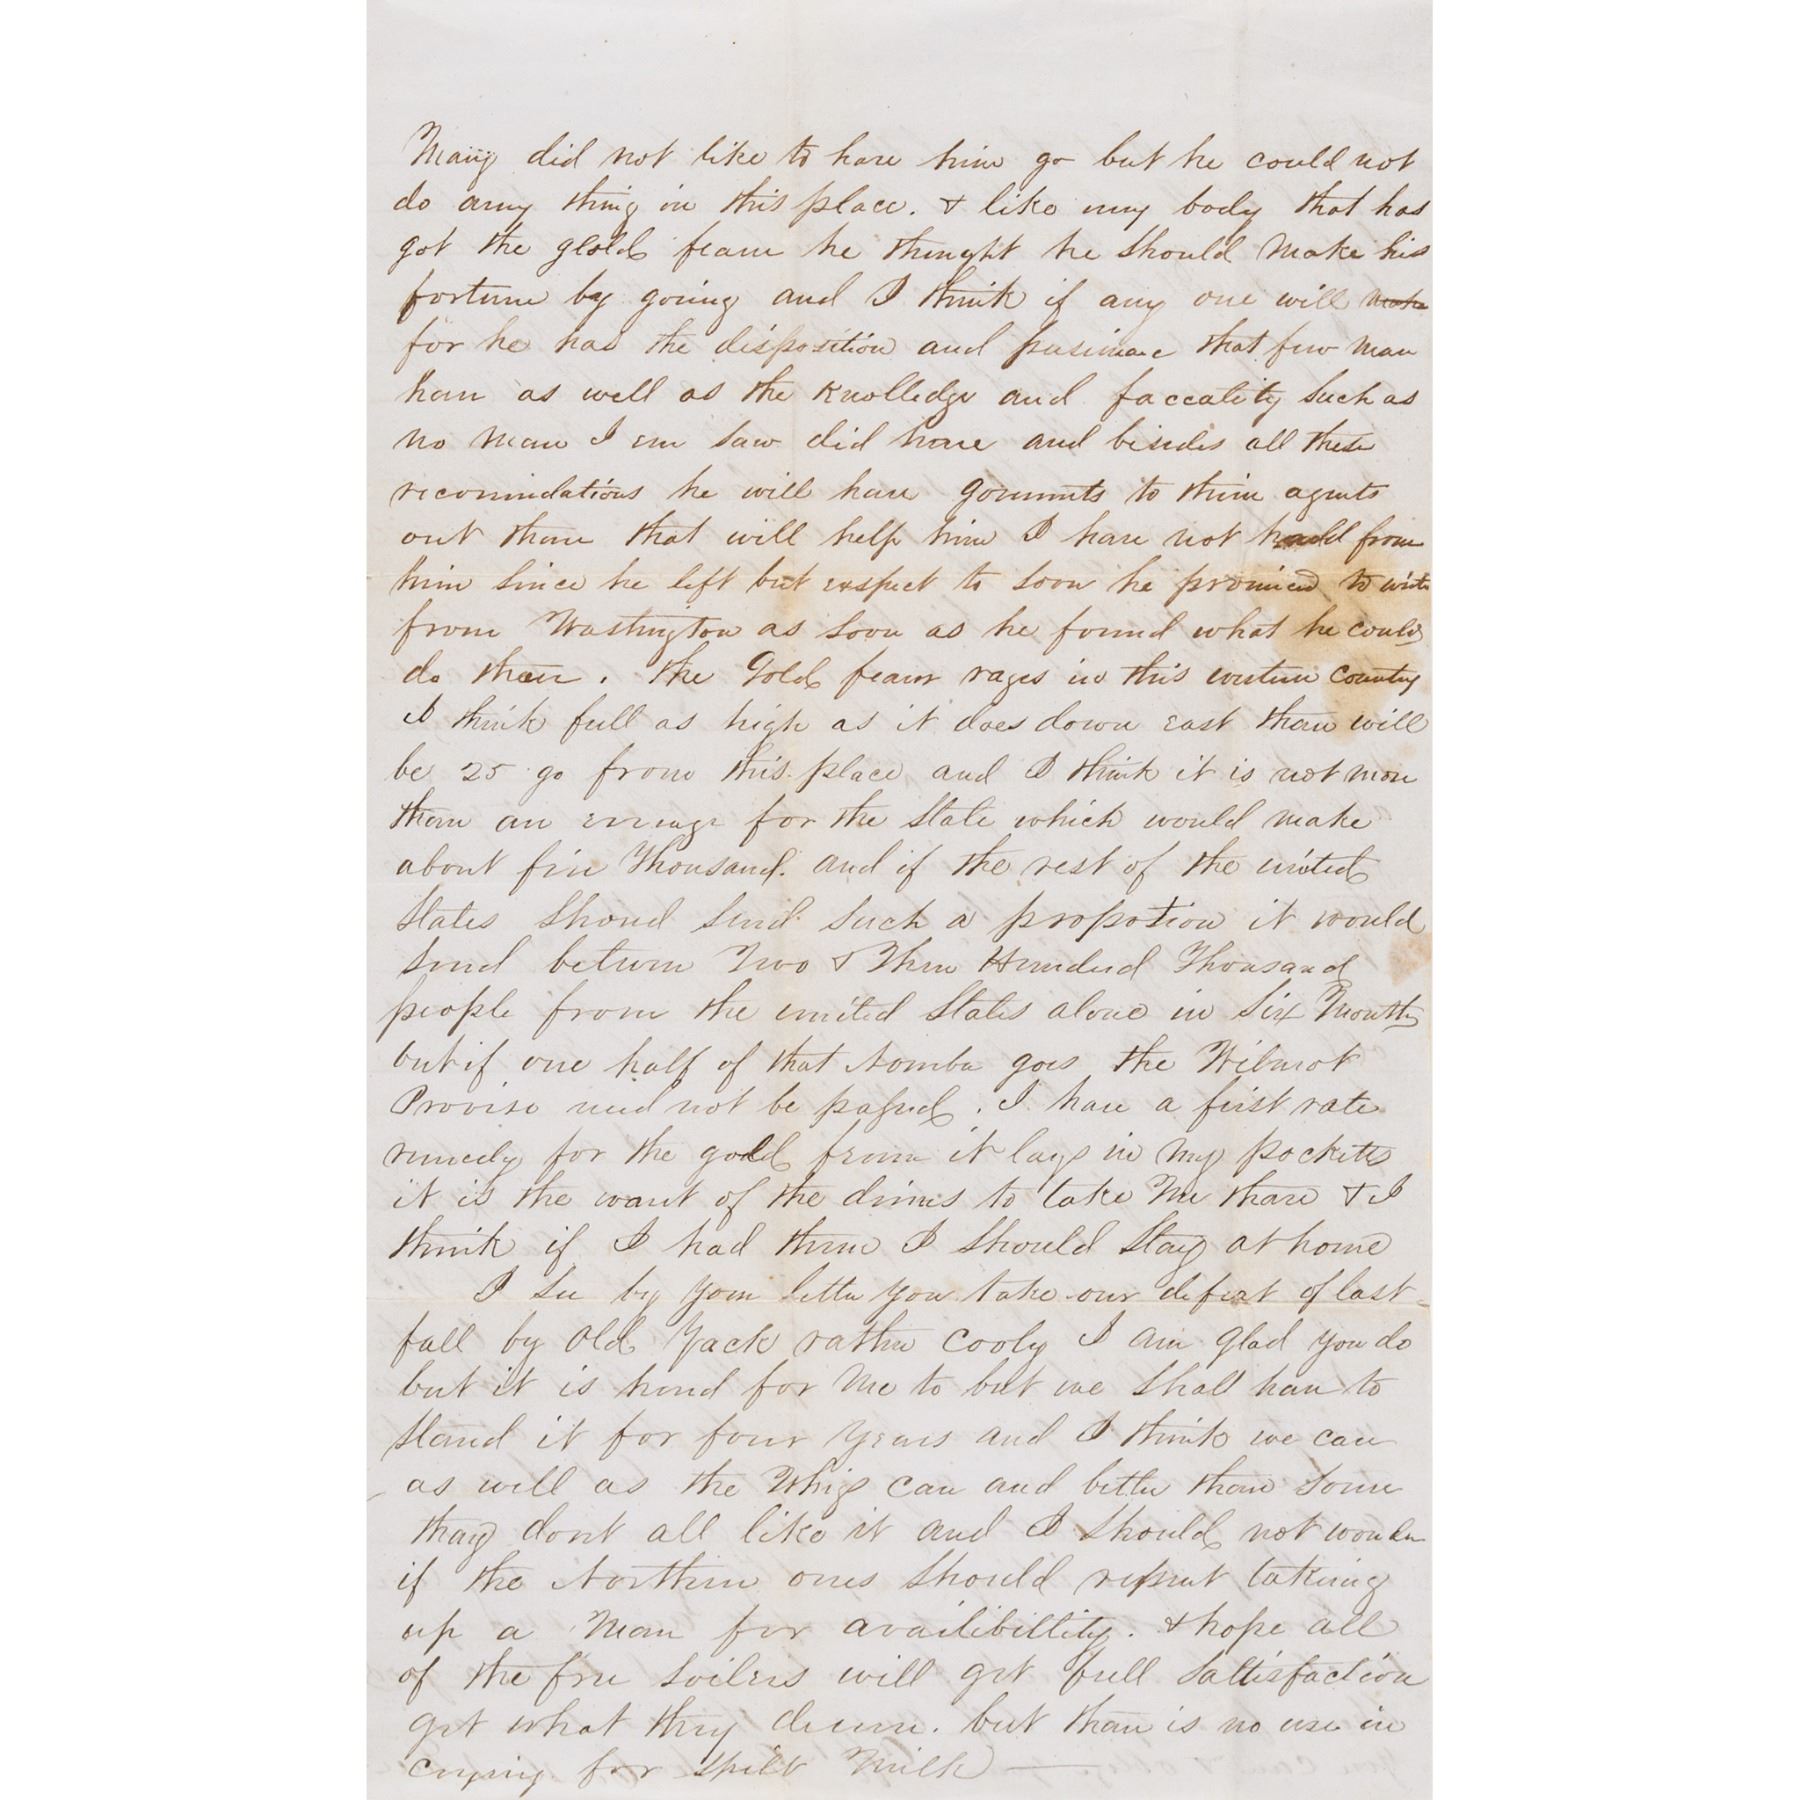 Many did not like to have him go but he could not
do any thing in this place. & like any body that has
got the gold feaver he thought he should make his
fortune by going and I think if any one will make
for he has the disposition and that few man
have as well as the knolledge and faccality such as
no man I ever saw did have and besides all these
recomindations he will have to thire agents
out thare that will help him I have not from
him since he left but exspect to soon he promised to write
from Washington as soon as he found what he could
do thare. The Gold feaver rages in this western country
I think full as high as it does down east thare will
be 25 go from this place and I think it is not more
than an for the State which would make
about five Thousand. and if the rest of the united
States shoud send such a propotion it would
send between Two & Three Hundred Thousand
people from the united States alone in Six Months
but if one half of that Nomber goes the Wilmot
Proviso need not be passed. I have a first rate
remedy for the gold it lays in my pocketts
it is the want of the dimes to take me thare & I
think if I had them I should stay at home
I see by your letter you take our defeat of last
fall by Old Zack rather cooly I am glad you do
but it is hard for me to but we shall have to
stand it for four years and I think we can
as well as the Whigs can and better than some
thay dont all like it and I should not wonder
if the Northern ones should repent taking
up a man for availibillity. & hope all
of the free soilers will get full sattisfaction
get what they deserve. but thare is no use in
crying for spilt milk